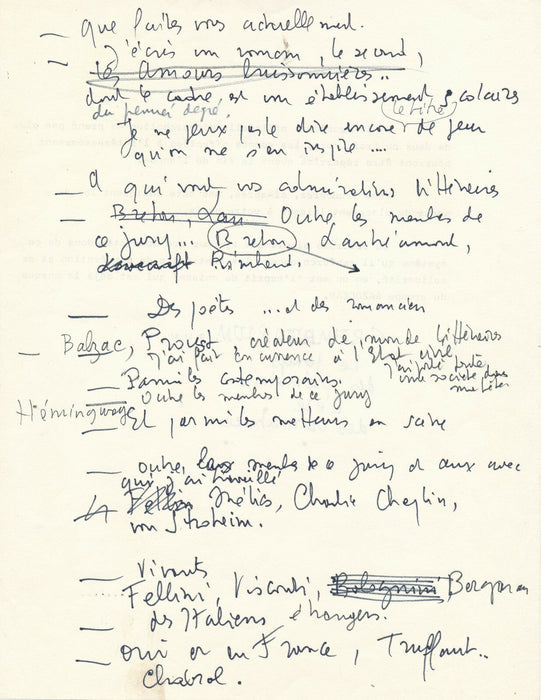 — que faites vous actuellement.
— J'écris un roman, le second,
les Amours buissonnières..
dont le cadre est un établissement scolaires
du premier degré.
Je ne peux pas le dire encore de peur
le titre
qu'on ne s'en inspire ...
— A qui vont vos admirations littéraires
— Breton, Lau Outre les membres de
ce jury... Breton, Lautréamont,
Lovecraft Rimbaud.
— Des poètes ... et des romanciers
— Balzac, Proust créateur de monde littéraires
J'ai fait concurrence à l'Etat civil,
j'ai porté toute
une société dans
ma tête
— Parmi les contemporains.
Outre les membres de ce jury
Hémingway
— Et parmi les metteurs en scène
— outre les membres de ce jury et ceux avec
qui j'ai travaillé
Fellini Méliès, Charlie Chaplin,
von Stroheim.
— Vivants
Fellini, Visconti, Bolognini Bergman
— des Italiens étrangers.
— oui et en France, Truffaut..
Chabrol.